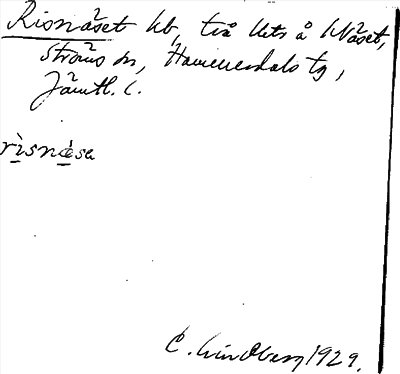 Risnåset kb, två lhts å kNäset,
Ströms sn, Hammerdals tg,
Jämtl. l.
risnäsa
C. Lindberg 1929.